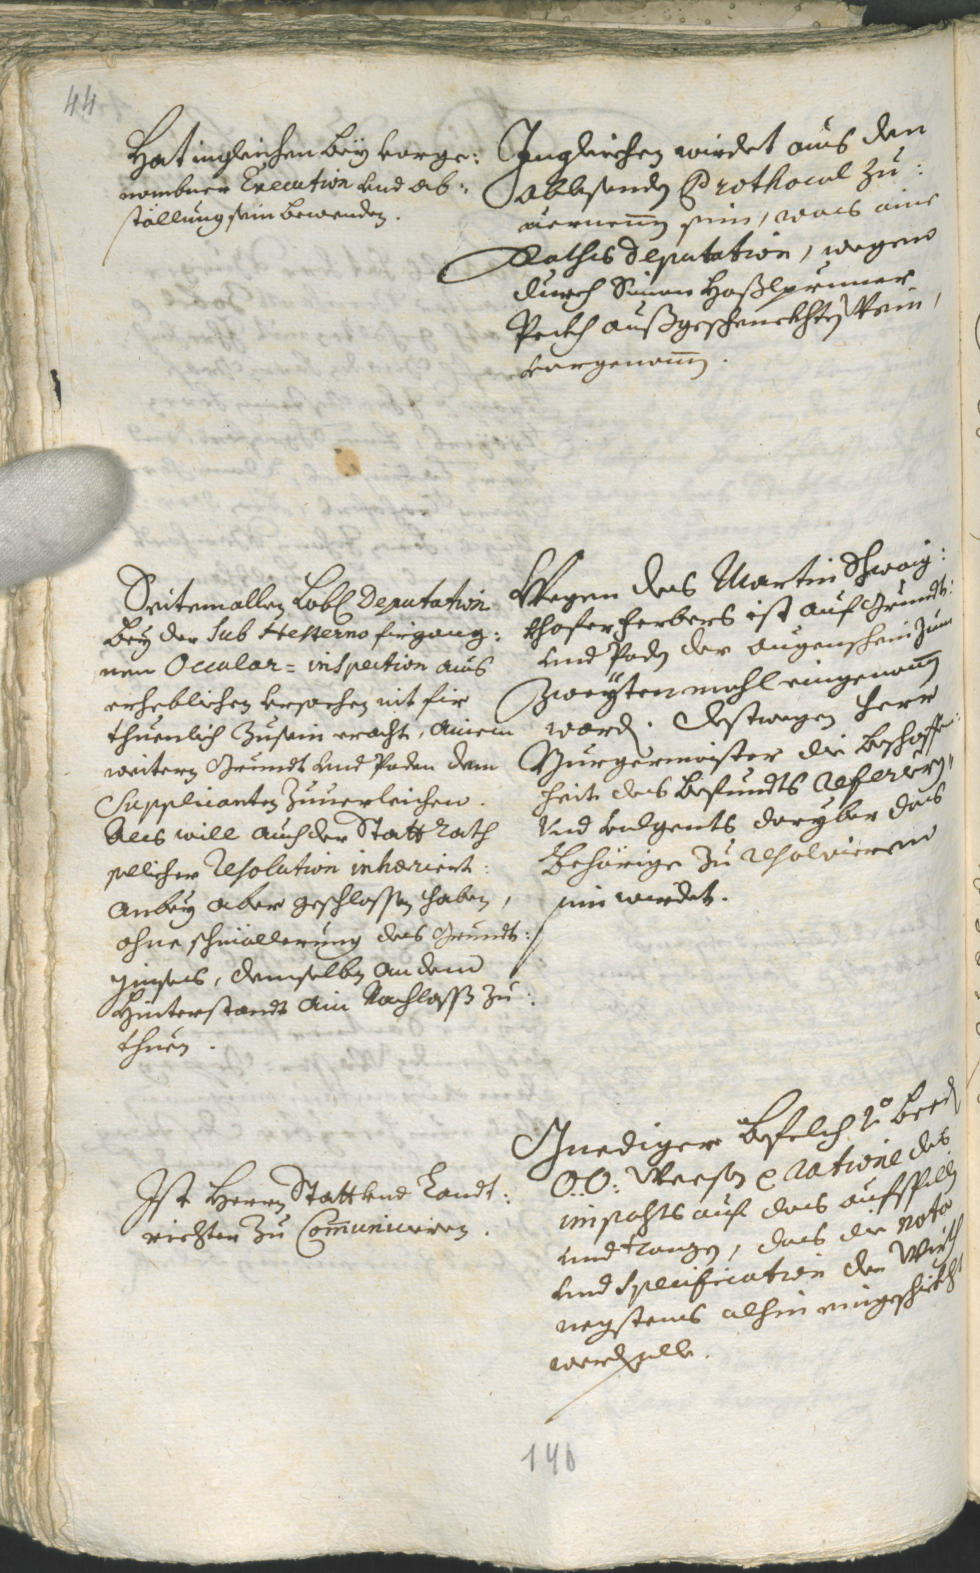 44
Hat ingleichen bey vorge:
nombner Execution und ab:
stöllung sein bewenden.
Ingleichen wirdet aus den
ablesenden Prothocol zu:
vernemen sein, was aine
Raths Deputation, wegen
durch Simon Haßlprunner
Pekh außgeschenckhten Wein,
vorgenomen.
Seitemallen Lobl Deputation
bey der sub Hesterno firgang:
nen Occular= inspection aus
erheblichen ursachen nit fir
thuenlich zusein eracht, ainem
weitern Grundt und Poden dem
Supplicanten zuuerleichen.
Als will auch der Statt Rath
sellicher Resolution inhæriert:
anbey aber geschlossen haben,
ohne schmällerung des Grundt:
zinses, demselben an dem
Hinterstandt ain Nachlaß zu:
thuen.
Wegen des Martin Schwaig:
hofer Ferbers ist auf Grundt:
und Poden der augenschein zum
zweyten mahl eingenomen
worden. Destwegen Herr
Burgermaister die beschaffen:
heit des befundts Referiern,
Und volgents daryber das
behörige zu resolvieren
sein wirdet.
Ist Herrn Statt und Landt:
richter zu Communiciren.
Gnediger Befelch
O:Ö: Weesen ratione des
impohsts auf das aufspillen
und Tanzen, das die nota
und Specification der Wirth
negstens alhin eingeschickht
werden solle.
140